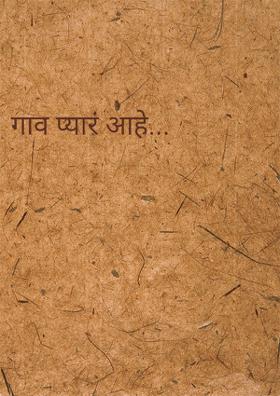 गाव प्यारं आहे...